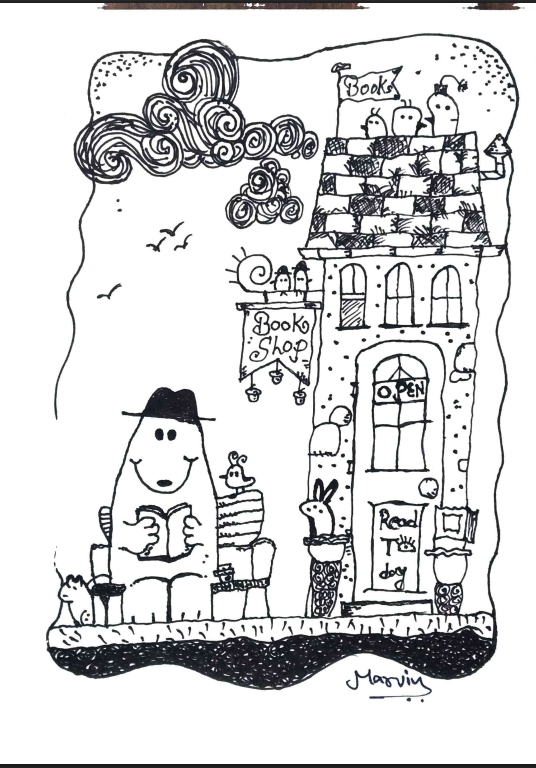 Books
Book
Shop
OPEN
Read
To
day
Marvin